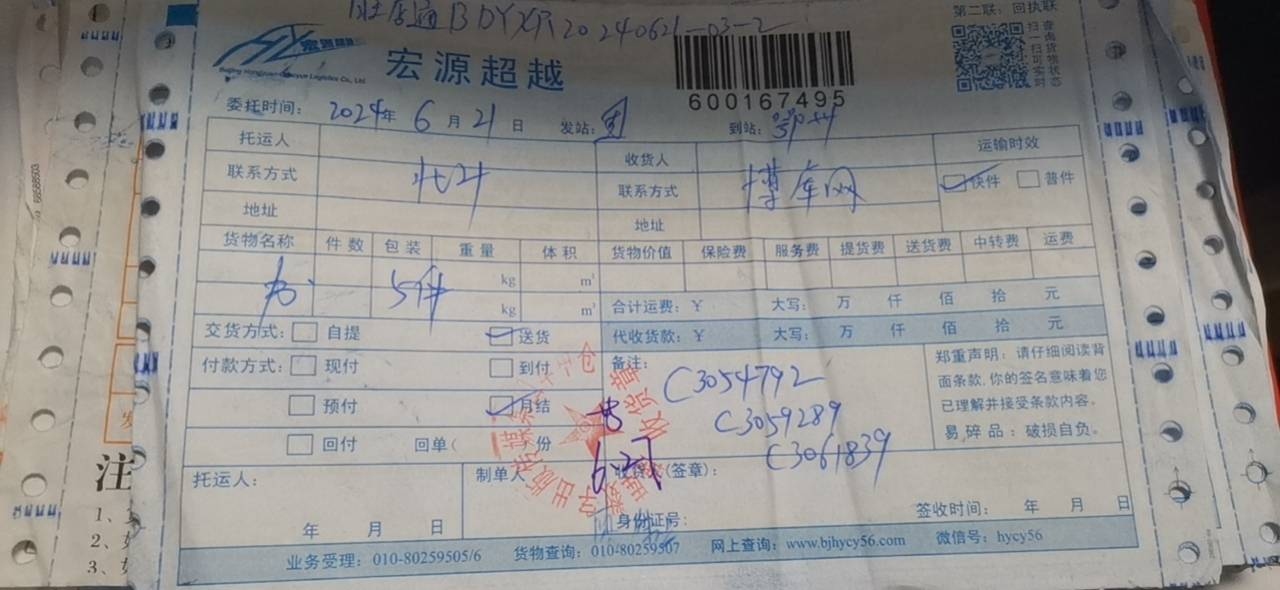 BDYXR20240621-03-2
第二联：回执联
宏源超越
扫一扫可实时
查点货物状态
600167495
委托时间：2024年 6月 21日 发站： 到站：
托运人 收货人 运输时效
联系方式 北斗 联系方式 博库网 快件 普件
地址 地址
货物名称 件数 包装 重量 体积 货物价值 保险费 服务费 提货费 送货费 中转费 运费
kg m³
书 5件 kg m³ 合计运费：￥ 大写： 万 仟 佰 拾 元
交货方式： 自提 送货 代收货款：￥ 大写： 万 仟 佰 拾 元
付款方式： 现付 到付 备注：
预付 月结
回付 回单( 份
C3054792
C3059289
C3061839
郑重声明：请仔细阅读背
面条款，你的签名意味着您
已理解并接受条款内容。
易碎品：破损自负。
托运人： 制单人 收货人(签章)：
6.27
身份证号：
年 月 日 签收时间： 年 月 日
业务受理：010-80259505/6 货物查询：010-80259507 网上查询：www.bjhycy56.com 微信号：hycy56
注
1、
2、
3、